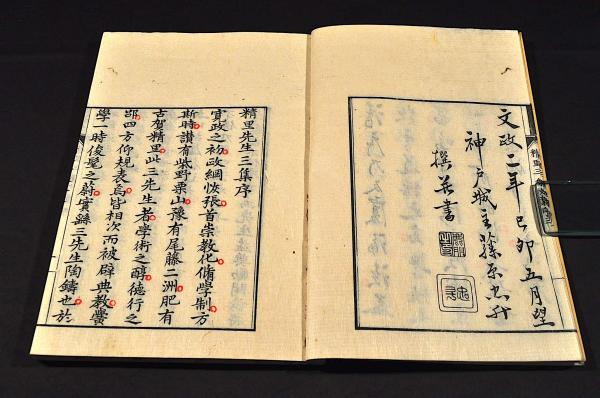 文政二年己卯五月望
神戸城主藤原忠升
撰并書
精里先生三集序
寛政之初政綱恢張首崇教化脩學制方
斯時讃有柴野栗山豫有尾藤二洲肥有
古賀精里此三先生者學術之醇德行之
卲四方仰規表焉皆相次而被辟典教黌
學一時俊髦之蔚實繇三先生陶鑄也於